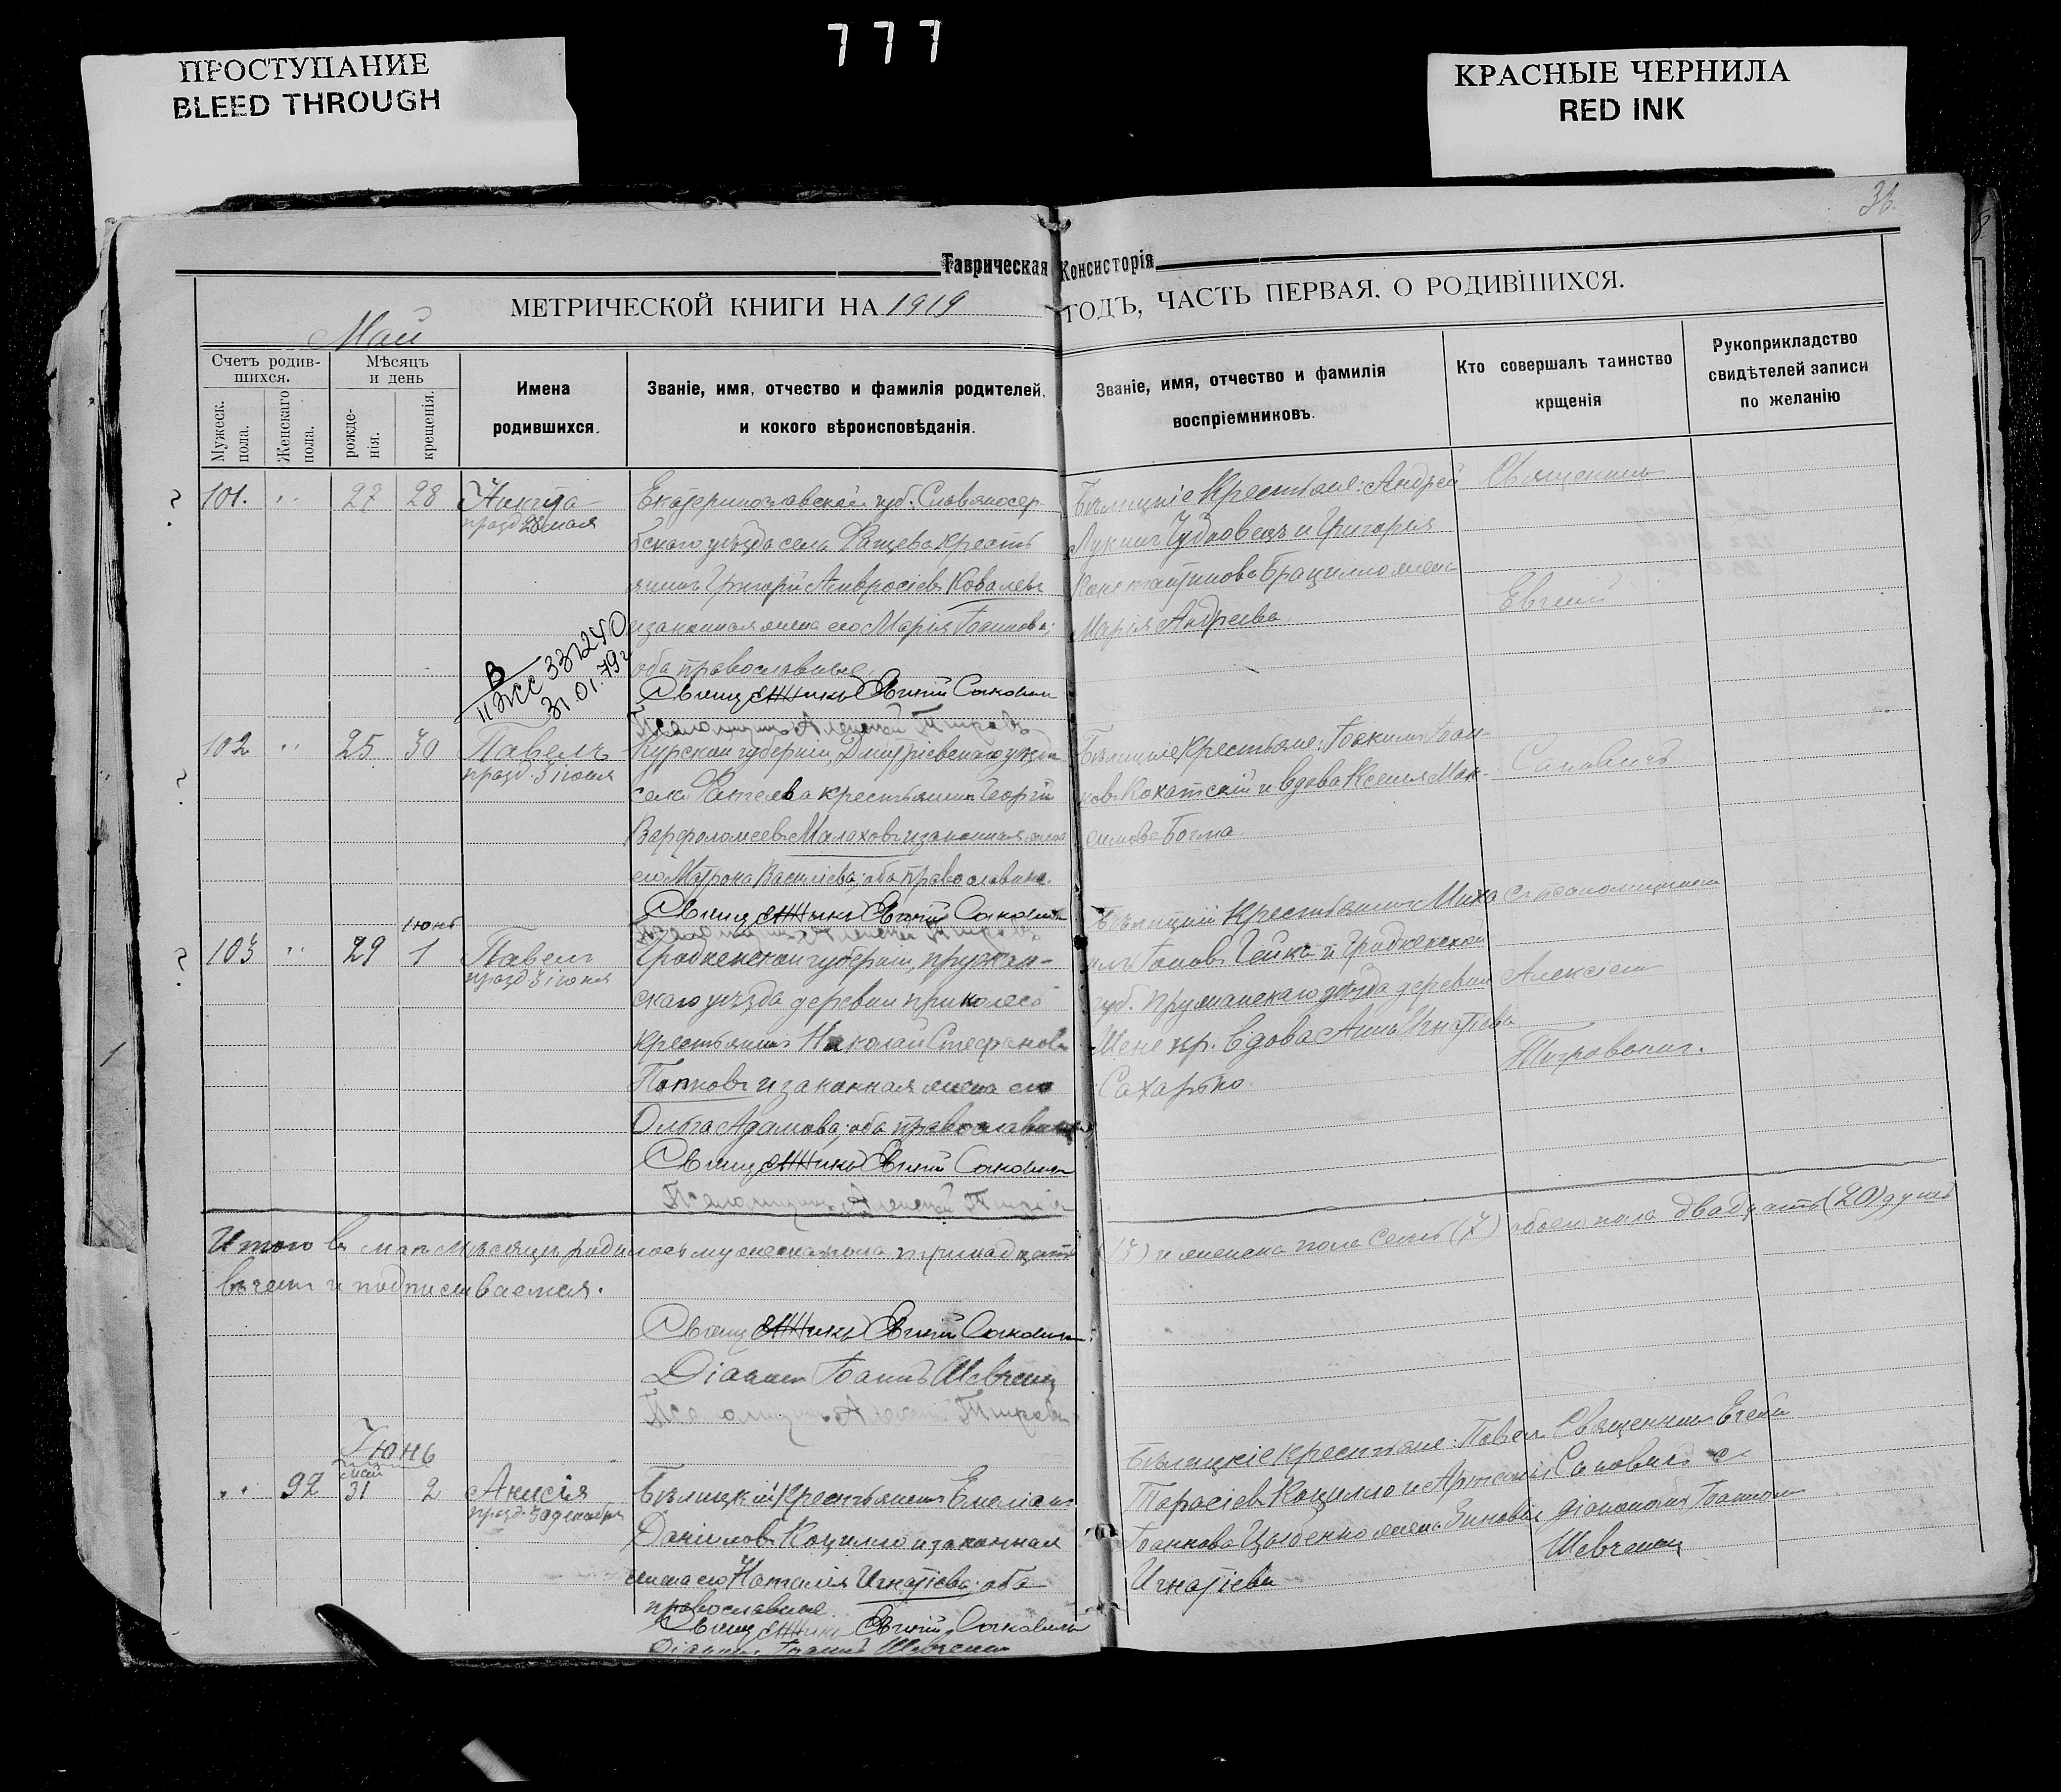 777
ПРОСТУПАНИЕ
BLEED THROUGH
КРАСНЫЕ ЧЕРНИЛА
RED INK
36.
8
Таврическая Консисторія
МЕТРИЧЕСКОЙ КНИГИ НА 1919 ГОДЪ, ЧАСТЬ ПЕРВАЯ, О РОДИВШИХСЯ.
Май
Счетъ родив-
шихся.
Мужеск.
пола.
Женскаго
пола.
Мѣсяцъ
и день
рожде-
нія.
крещенія.
Имена
родившихся.
Званіе, имя, отчество и фамилія родителей,
и кокого вѣроисповѣданія.
Званіе, имя, отчество и фамилія
воспріемниковъ.
Кто совершалъ таинство
крщенія
Рукоприкладство
свидѣтелей записи
по желанію
101. " 27 28 Никита
празд 28 мая
Екатеринославской губ. Славяносер
бскаго уѣзда села Ращева крестъ
янинъ Григорій Амвросіевъ Ковалевъ
и законная жена его Марія Іоаннова;
оба православные
Священникъ Евгеній Саковичъ
Псаломщикъ Алексій
Бѣлицкіе крестьяне: Андрей
Лукинъ Чудновецъ и Григорія
Константинова Брацилло жена
Марія Андреева.
Священникъ
Евгеній
Саковичъ
В
II ЖС 331240
31.01.79г
102 " 25 30 Павелъ
празд. 3 іюня
Курской губерніи, Дмитріевскаго уѣзда
села Фатеева крестьянинъ Георгій
Варфоломеевъ Малаховъ и законная жена
его Матрона Василіева; оба православные.
Священникъ Евгеній Саковичъ
Бѣлицкіе крестьяне: Іоакимъ Іоан-
новъ Кокотскій и вдова Ксенія Мак-
симова Богма
іюнь
103 " 29 1 Павелъ
празд 3 іюня
Гродненской губерніи, пружан-
скаго уѣзда деревни
крестьянинъ Николай Стефановъ
Попковъ и законная жена его
Ольга Адамова; оба православные
Священникъ Евгеній Саковичъ
Псаломщикъ Алексій
Бѣлицкій крестьянинъ Миха
илъ Іоановъ Гейко и Гродненской
губ. Пружанскаго уѣзда деревни
кр. вдова Анна Игнатіева
Сахарько
съ псаломщикомъ
Алексіемъ
Итого въ маѣ мѣсяцѣ родилось мужеска пола тринадцать (13) и женска пола семь (7) обоего пола двадцать (20) душъ
въ чемъ и подписываемся.
Священникъ Евгеній Саковичъ
Діаконъ Іоаннъ Шевченко
Іюнь
" 92 май 31 2 Анисія
празд. 30 декабря
Бѣлицкій крестьянинъ Емеліанъ
Даніиловъ Коцилло и законная
жена его Наталія Игнатіева; оба
православные.
Священникъ Евгеній Саковичъ
Діаконъ Іоаннъ Шевченко
Бѣлицкіе крестьяне: Павелъ
Тарасіевъ Коцилло и
Іоаннова Цыбенко жена Зиновія
Игнатіева
Священникъ Евгеній
Саковичъ съ
діакономъ Іоанномъ
Шевченко